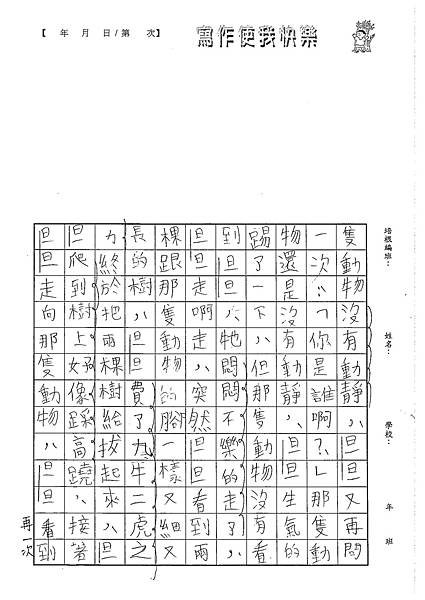 【 年 月 日/第 次】
寫作使我快樂
培根編班：
姓名：
學校：
年 班
隻動物沒有動靜，旦又再問
一次：「你是誰啊？」旦那隻動
物還是沒有動靜，旦旦生氣的
踢了一下，但那隻動物沒有看
到旦旦，牠悶悶不樂的走了，
旦旦走啊走，突然旦看到兩
棵跟那隻動物的腳一樣又細又
長的樹，旦費了九牛二虎之
力終於把兩棵樹給拔起來，旦
旦爬到樹上好像踩高蹺，接著
旦旦走向那隻動物，旦旦看到
再一次